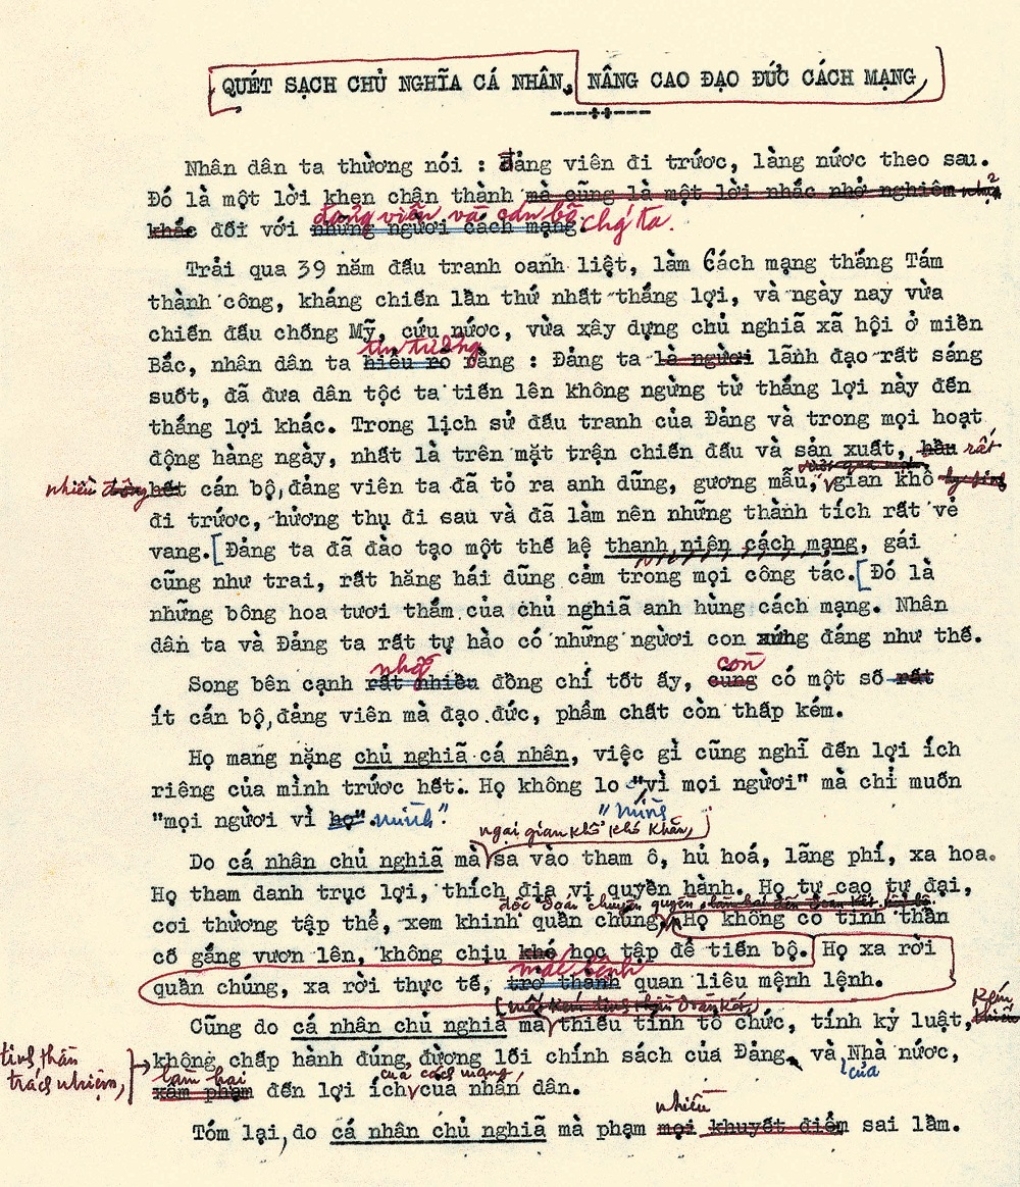 QUÉT SẠCH CHỦ NGHĨA CÁ NHÂN, NÂNG CAO ĐẠO ĐỨC CÁCH MẠNG
Nhân dân ta thường nói : Đảng viên đi trước, làng nước theo sau.
Đó là một lời khen chân thành mà cũng là một lời nhắc nhở nghiêm
đảng viên và cán bộ chúng ta.
khắc đối với những người cách mạng.
Trải qua 39 năm đấu tranh oanh liệt, làm Cách mạng tháng Tám
thành công, kháng chiến lần thứ nhất thắng lợi, và ngày nay vừa
chiến đấu chống Mỹ, cứu nước, vừa xây dựng chủ nghiã xã hội ở miền
tin tưởng
Bắc, nhân dân ta hiểu rõ rằng : Đảng ta là người lãnh đạo rất sáng
suốt, đã đưa dân tộc ta tiến lên không ngừng từ thắng lợi này đến
thắng lợi khác. Trong lịch sử đấu tranh của Đảng và trong mọi hoạt
động hàng ngày, nhất là trên mặt trận chiến đấu và sản xuất, hầu rất
nhiều hết cán bộ, đảng viên ta đã tỏ ra anh dũng, gương mẫu, gian khổ
đi trước, hưởng thụ đi sau và đã làm nên những thành tích rất vẻ
vang. [Đảng ta đã đào tạo một thế hệ thanh niên cách mạng, gái
cũng như trai, rất hăng hái dũng cảm trong mọi công tác. [Đó là
những bông hoa tươi thắm của chủ nghiã anh hùng cách mạng. Nhân
dân ta và Đảng ta rất tự hào có những người con xứng đáng như thế.
những còn
Song bên cạnh rất nhiều đồng chí tốt ấy, cũng có một số rất
ít cán bộ, đảng viên mà đạo đức, phẩm chất còn thấp kém.
Họ mang nặng chủ nghiã cá nhân, việc gì cũng nghĩ đến lợi ích
riêng của mình trước hết. Họ không lo "vì mọi người" mà chỉ muốn
"mọi người vì họ". mình". "mình
ngại gian khổ khó khăn,
Do cá nhân chủ nghiã mà sa vào tham ô, hủ hoá, lãng phí, xa hoa.
Họ tham danh trục lợi, thích địa vị quyền hành. Họ tự cao tự đại,
độc đoán chuyên quyền
coi thường tập thể, xem khinh quần chúng, Họ không có tinh thần
cố gắng vươn lên, không chịu khó học tập để tiến bộ. Họ xa rời
mắc bệnh
quần chúng, xa rời thực tế, trở thành quan liêu mệnh lệnh.
Cũng do cá nhân chủ nghiã mà thiếu tính tổ chức, tính kỷ luật, kém
tinh thần trách nhiệm, không chấp hành đúng đường lối chính sách của Đảng và của Nhà nước,
làm hại của cách mạng,
xâm phạm đến lợi ích của nhân dân.
nhiều
Tóm lại, do cá nhân chủ nghiã mà phạm mọi khuyết điểm sai lầm.